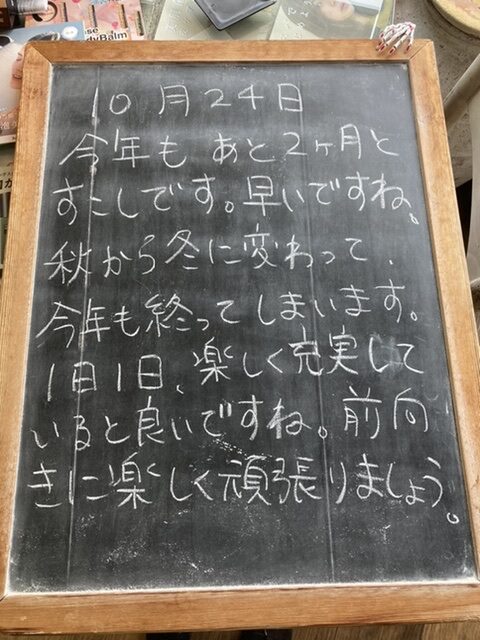 se
dyBalm
10月24日
今年も あと2ヶ月と
すこしです。早いですね。
秋から冬に変わって、
今年も終ってしまいます。
1日1日、楽しく充実して
いると良いですね。前向
きに楽しく頑張りましょう。